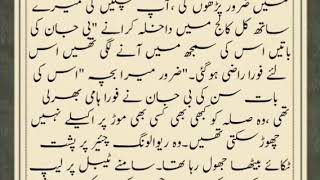 میں ضرور پڑھوں گی ،آپ چلیں گی میرے
ساتھ کل کالج میں داخلہ کرانے "بی جان کی
باتیں اس کی سمجھ میں آنے لگی تھیں اس
لئے فورا راضی ہوگئی۔"ضرور میرا بچہ "اس کی
بات سن کی بی جان نے فورا ہامی بھرلی
تھی ،وہ صلہ کو کبھی بھی کسی موڑ پر اکیلے نہیں
چھوڑ سکتی تھیں۔وہ ریوالونگ چئیر پر پشت
ٹکائے بیٹھا جھول رہا تھا۔سامنے ٹیبل پر لیپ